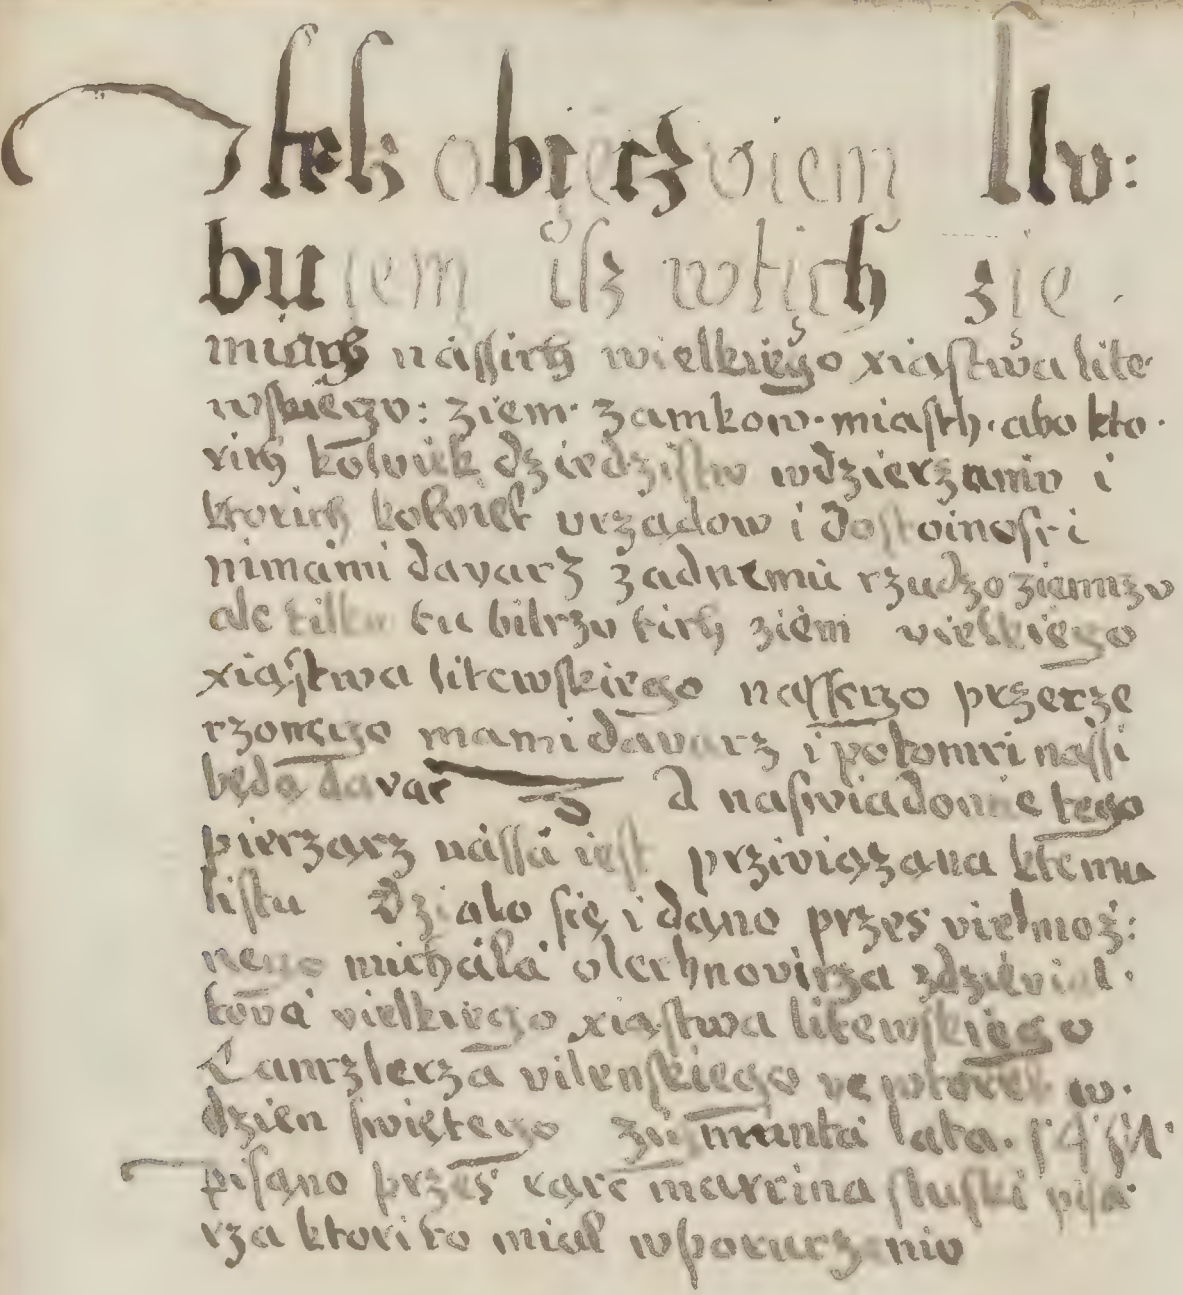 Itek obierzviem slv:
bujem isz wtich zie
miach nassich wielkiego xiastwa lite
wskiego: ziem· zamkow· miasth· abo kto·
rich kolwiek dziedzistw wdzierzaniv i
ktorich kolwiek vrzadow i dostoinosci
nimami davacz zadnemu czudzoziemczv
ale tilko tu bilczv tich ziem vielkiego
xiąstwa litewskiego nassego przerze
rzonego mami davacz i potomci nassi
będą davac A naswiadomie tego
pierząrz nassa iest prziviązana ktemu
listu Dzialo się i dąno przes vielmoż:
nego michala olechnovicza zdzievial·
tova vielkiego xiąstwa litewskiego
Canczlerza vilenskiego ve wtorek w·
dzien swiętego zigmunta lata· 1451·
pisąno przes ręce marcina sluski pisa·
rza ktori to mial wporuczeniv